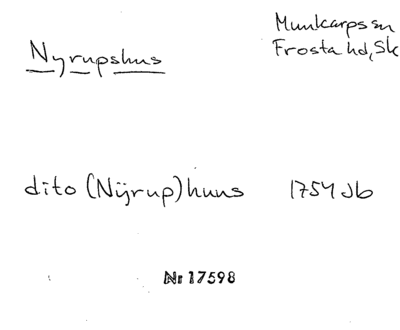 Nyrupshus
Munkarps sn
Frosta hd, Sk
dito (Nÿrup) huus 1754 Jb
Nr 17598